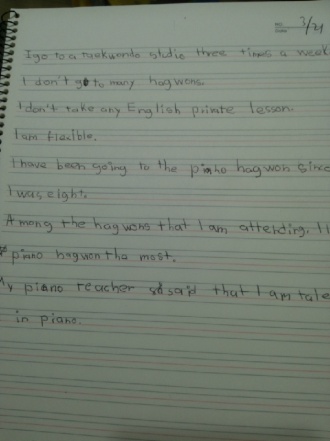 3/21
I go to a taekwondo studio three times a week
I don't go to many hagwons.
I don't take any English private lesson.
I am flexible.
I have been going to the piano hagwon since
I was eight.
Among the hagwons that I am attending, I l
piano hagwon the most.
My piano teacher said that I am tale
in piano.